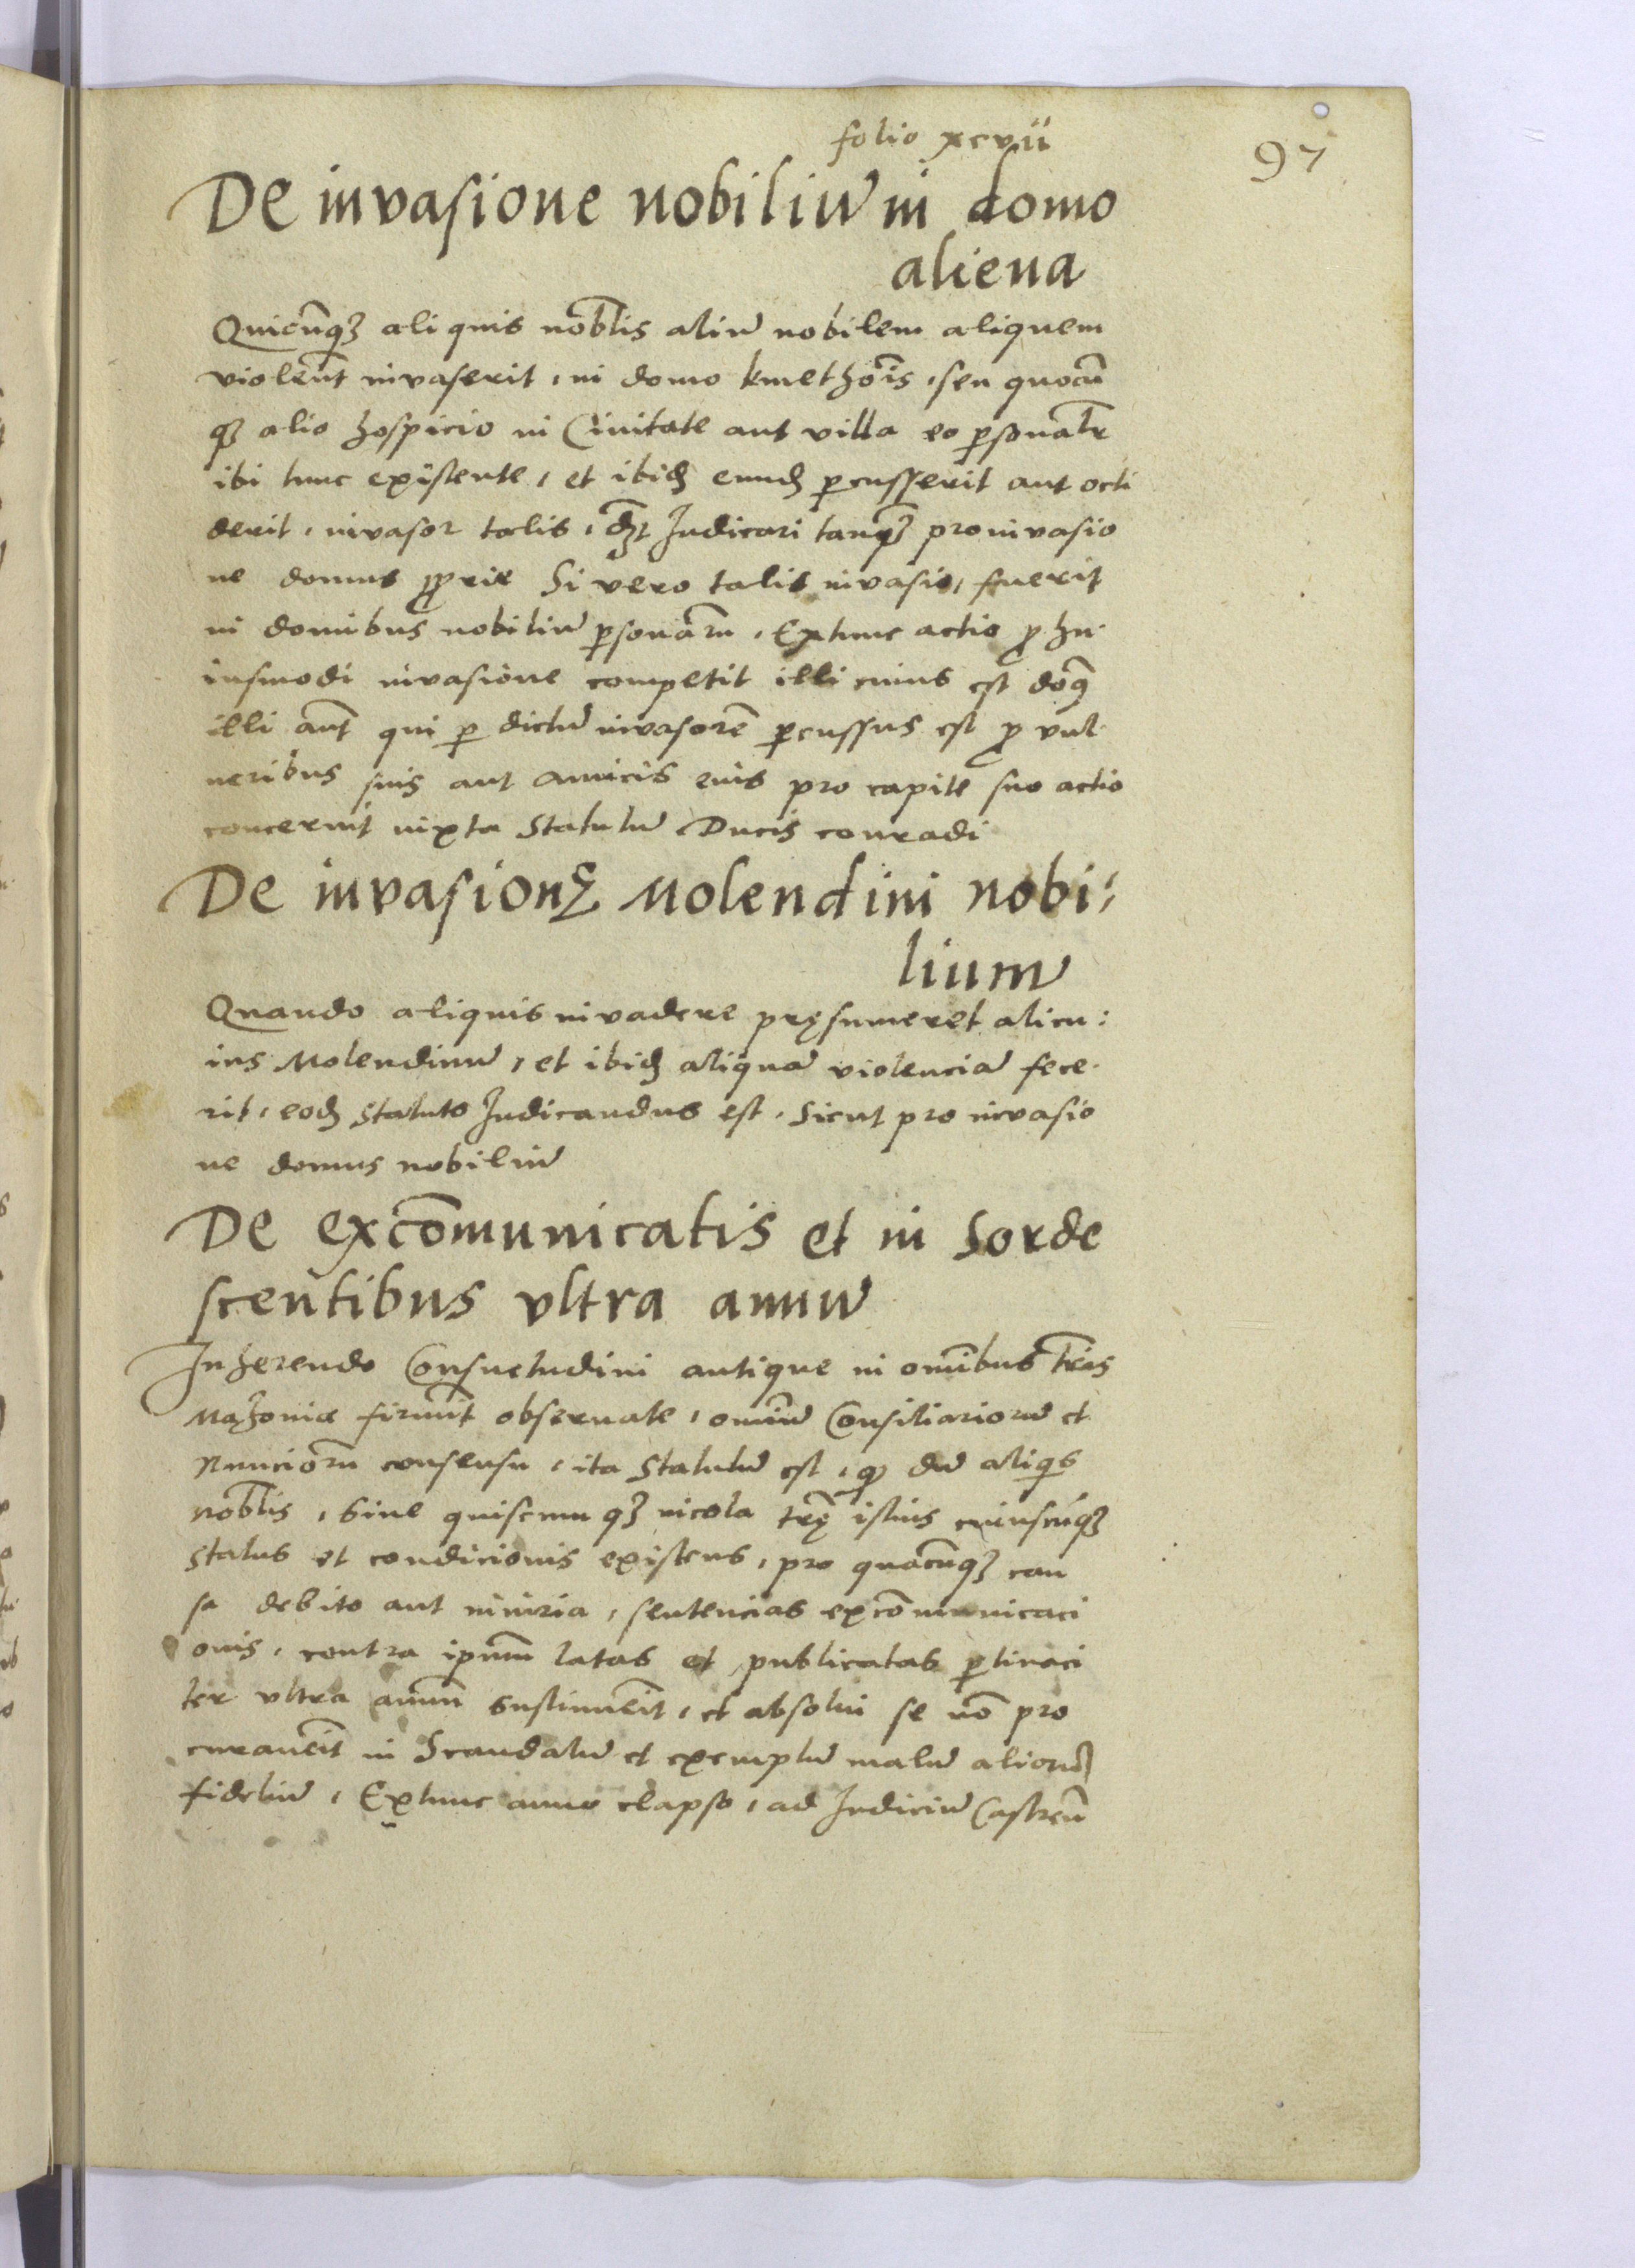 folio xcvii
97
De invasione nobiliū in domo
aliena
Quicūqȝ aliquis nobłis aliū nobilem aliquem
violēnt invaserit, in domo kmethōis, seu quocū
qȝ alio hospicio in Civitate aut villa eo ꝑsonałr
ibi tunc existente, et ibidē eundē ꝑcusserit aut occi
derit, invasor talis, dȝt Judicari tanqȝ pro invasio
ne domus ꝓprie Si vero talis invasio, fuerit
in domibus nobiliū ꝑsonarū, Extunc actio ꝓ hu-
iusmodi invasione competit illi cuius est domꝰ
illi aūt qui ꝑ dictū invasorē ꝑcussus est ꝓ vul-
neribus suis aut amicis eius pro capite suo actio
concernit iuxta Statutū Ducis conradi
De invasionę Molendini nobi:
lium
Quando aliquis invadere pręsumeret alicu:
ius Molendinū, et ibidē aliquā violenciā fece-
rit, eodē Statuto Judicandus est, Sicut pro invasio
ne domus nobiliū
De excōmunicatis et in Sorde
scentibus vltra annū
Inherendo Consuetudini antique in omībus tris
Mazoniæ firmīt obseruate, omniū Consiliariorū et
Nunciorū consensu, ita Statutū est, qꝫ dū aliqis
nobłis, Siue quiscunqȝ incola trę istius cuiuscūqȝ
Status et condicionis existens, pro quacūqȝ cau
sa debito aut iniuria, sentencias excōmunicaci
onis, contra ipsum latas et publicatas ꝑtinaci
ter vltra annū sustinuerit, et absolui se nō pro
curauerit in Scandalū et exemplū malū aliorū
fideliū, Extunc anno elapso, ad Judiciū Castrēn